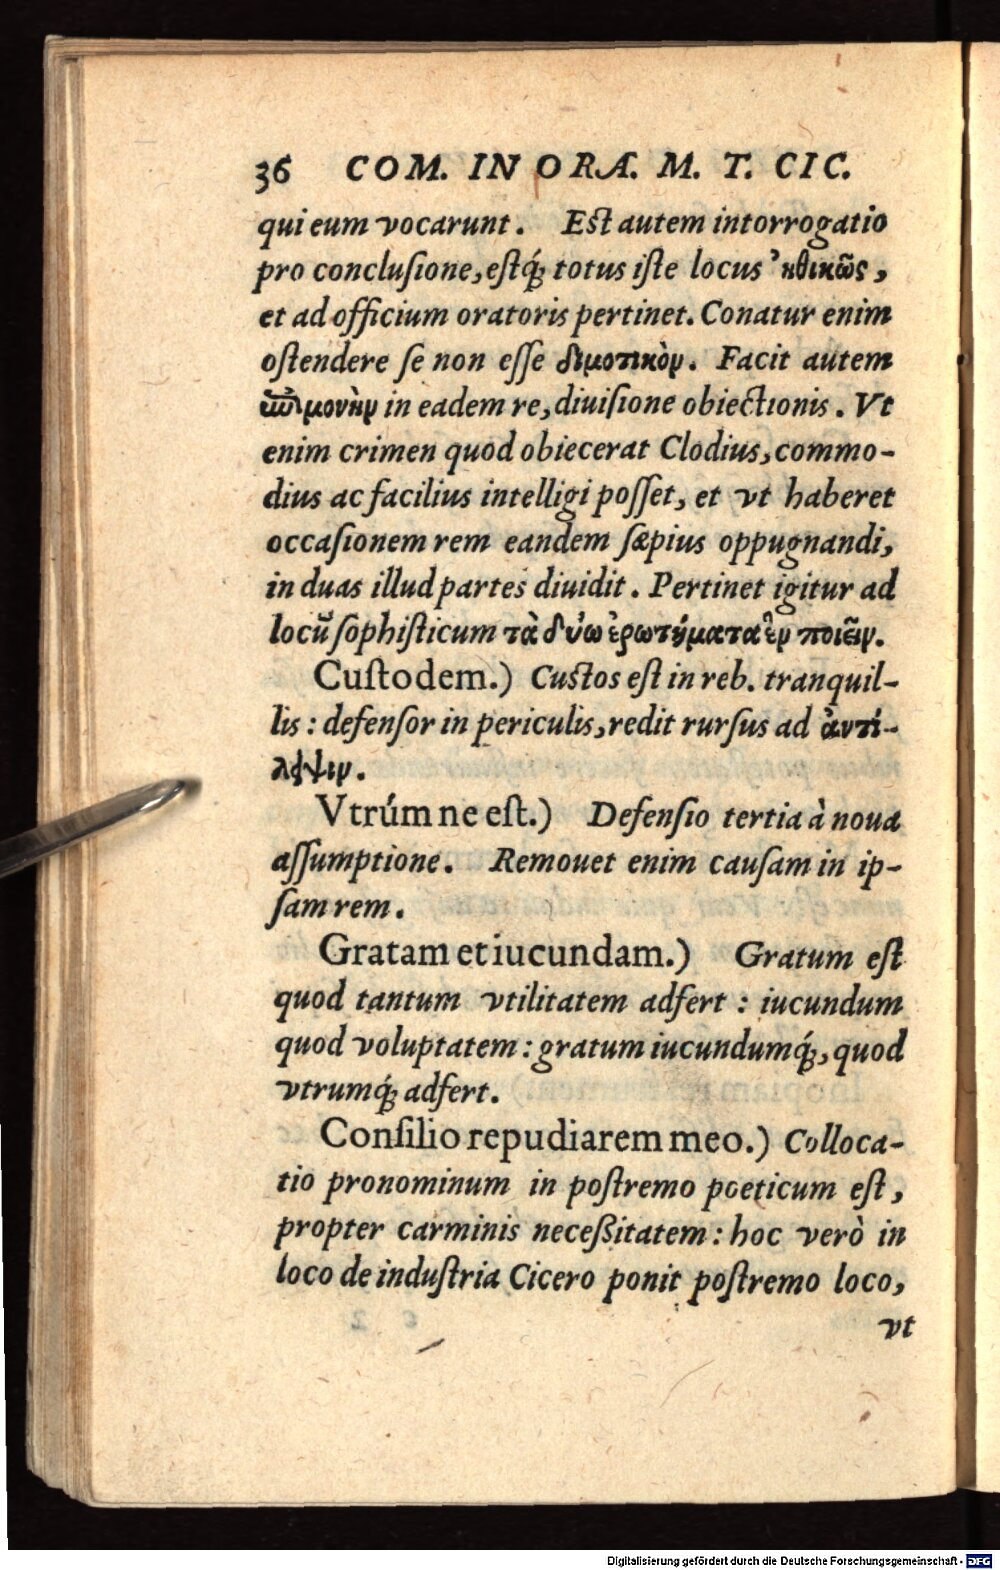 36 COM. IN ORÆ. M. T. CIC.
qui eum vocarunt. Est autem intorrogatio
pro conclusione, estq́; totus iste locus ἠθικῶς,
et ad officium oratoris pertinet. Conatur enim
ostendere se non esse διμοτικὸν. Facit autem
ἐπιμονὴν in eadem re, diuisione obiectionis. Vt
enim crimen quod obiecerat Clodius, commo-
dius ac facilius intelligi posset, et vt haberet
occasionem rem eandem sæpius oppugnandi,
in duas illud partes diuidit. Pertinet igitur ad
locū sophisticum τὰ δύω ἐρωτήματα ἓν ποιεῖν.
Custodem.) Custos est in reb. tranquil-
lis: defensor in periculis, redit rursus ad ἀντί-
ληψιν.
Vtrúm ne est.) Defensio tertia à noua
assumptione. Remouet enim causam in ip-
sam rem.
Gratam et iucundam.) Gratum est
quod tantum vtilitatem adfert: iucundum
quod voluptatem: gratum iucundumq́;, quod
vtrumq́; adfert.
Consilio repudiarem meo.) Colloca-
tio pronominum in postremo poeticum est,
propter carminis necessitatem: hoc verò in
loco de industria Cicero ponit postremo loco,
vt
Digitalisierung gefördert durch die Deutsche Forschungsgemeinschaft - DFG